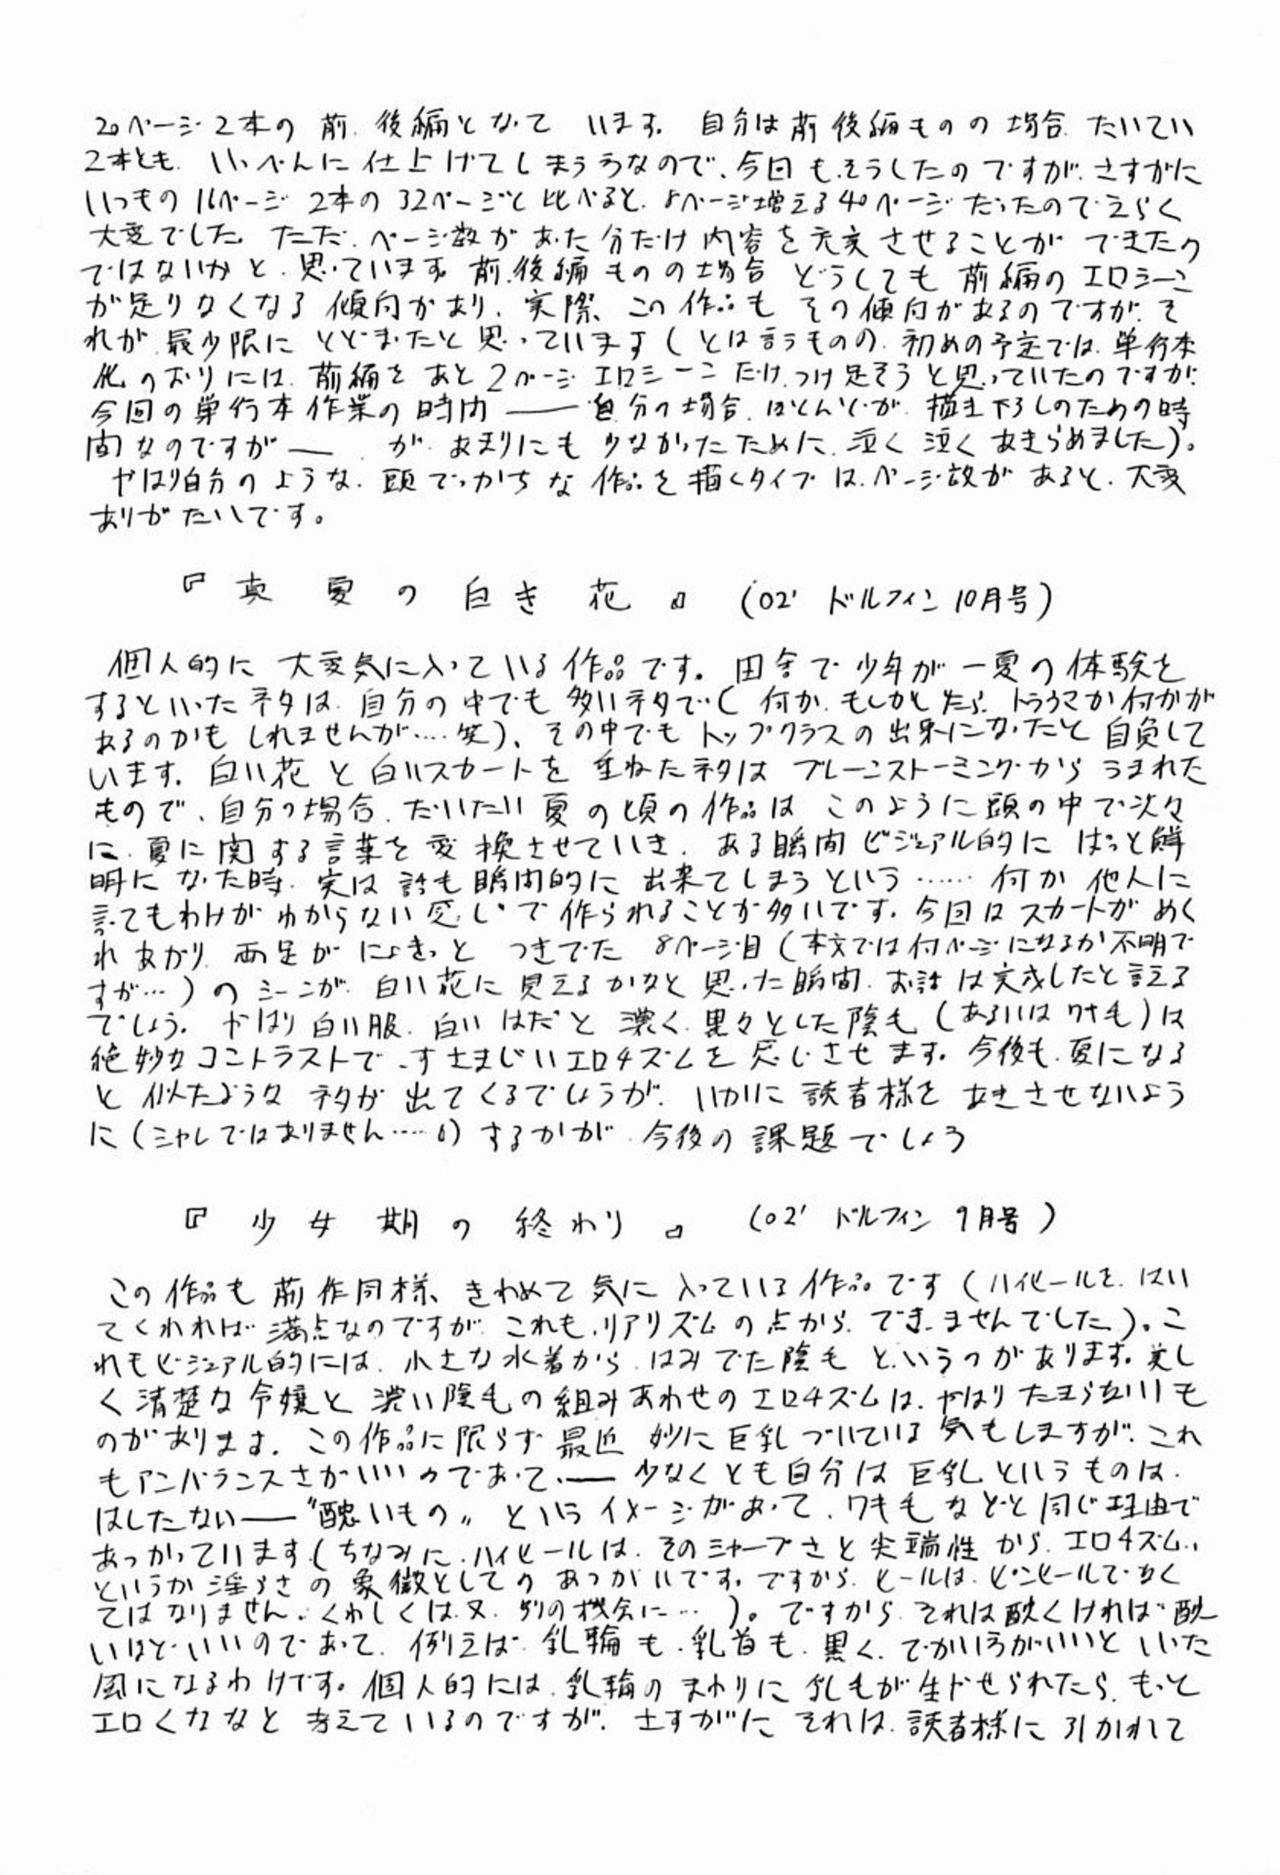 20ページ2本の前、後編となっています。自分は前後編ものの場合、たいてい
2本とも、いっぺんに仕上げてしまうなので、今回もそうしたのですが、さすがに
いつもの16ページ2本の32ページと比べると、8ページ増える40ページだったのでえらく
大変でした。ただ、ページ数があった分だけ内容を充実させることができたの
ではないかと、思っています。前、後編ものの場合どうしても前編のエロシーン
が足りなくなる傾向があり、実際、この作品もその傾向があるのですが、そ
れが、最少限にとどまったと思っています(とは言うものの、初めの予定では、単行本
化のおりには、前編をあと2ページエロシーンだけ、つけ足そうと思っていたのですが、
今回の単行本作業の時間――自分の場合、ほとんどが、描き下ろしのための時
間なのですが――、が、あまりにも少なかったために、泣く泣くあきらめました)。
やはり自分のような、頭でっかちな作品を描くタイプは、ページ数があると、大変
ありがたいです。
『真夏の白き花』(02' ドルフィン10月号)
個人的に大変気に入っている作品です。田舎で少年が一夏の体験を
するといったネタは、自分の中でも多いネタで(何か、もしかしたら、トラウマか何かが
あるのかもしれませんが‥‥笑)、その中でもトップクラスの出来になったと自負して
います。白い花と白いスカートを重ねたネタはブレーンストーミングからうまれた
もので、自分の場合、だいたい夏の頃の作品はこのように頭の中で次々
に、夏に関する言葉を変換させていき、ある瞬間ビジュアル的にぱっと鮮
明になった時、実は話も瞬間的に出来てしまうという……何か他人に
言ってもわけがわからない感じで作られることが多いです。今回はスカートがめく
れあがり、両足がにょきっとつきでた8ページ目(本文では何ページになるか不明で
すが…)のシーンが、白い花に見えるかなと思った瞬間、お話は完成したと言える
でしょう。やはり白い服、白いはだと濃く、黒々とした陰毛(あるいはワキ毛)は
絶妙なコントラストで、すさまじいエロチズムを感じさせます。今後も、夏になる
と似たようなネタが出てくるでしょうが、いかに読者様をあきさせないよう
に(シャレではありません‥‥)するかが、今後の課題でしょう
『少女期の終わり』(02' ドルフィン9月号)
この作品も前作同様、きわめて気に入っている作品です(ハイヒールを、はい
てくれれば満点なのですが、これも、リアリズムの点から、できませんでした)。こ
れもビジュアル的には、小さな水着から、はみでた陰毛というのがあります。美し
く清楚な令嬢と濃い陰毛の組みあわせのエロチズムは、やはりたまらないいも
のがあります。この作品に限らず最近妙に巨乳づいている気もしますが、これ
もアンバランスさがいいのであって、――少なくとも自分は巨乳というものは、
はしたない――〝醜いもの〟というイメージがあって、ワキ毛などと同じ理由で
あつかっています(ちなみに、ハイヒールは、そのシャープさと尖端性から、エロチズム、
というか淫らさの象徴としてのあつかいです。ですから、ヒールは、ピンヒールでなく
てはなりません。くわしくは、又、別の機会に…)。ですから、それは醜くければ醜
いほどいいのであって、例えば、乳輪も、乳首も、黒く、でかいほうがいいといった
風になるわけです。個人的には、乳輪のまわりに乳毛が生やせられたら、もっと
エロくなると考えているのですが、さすがにそれは、読者様に引かれて